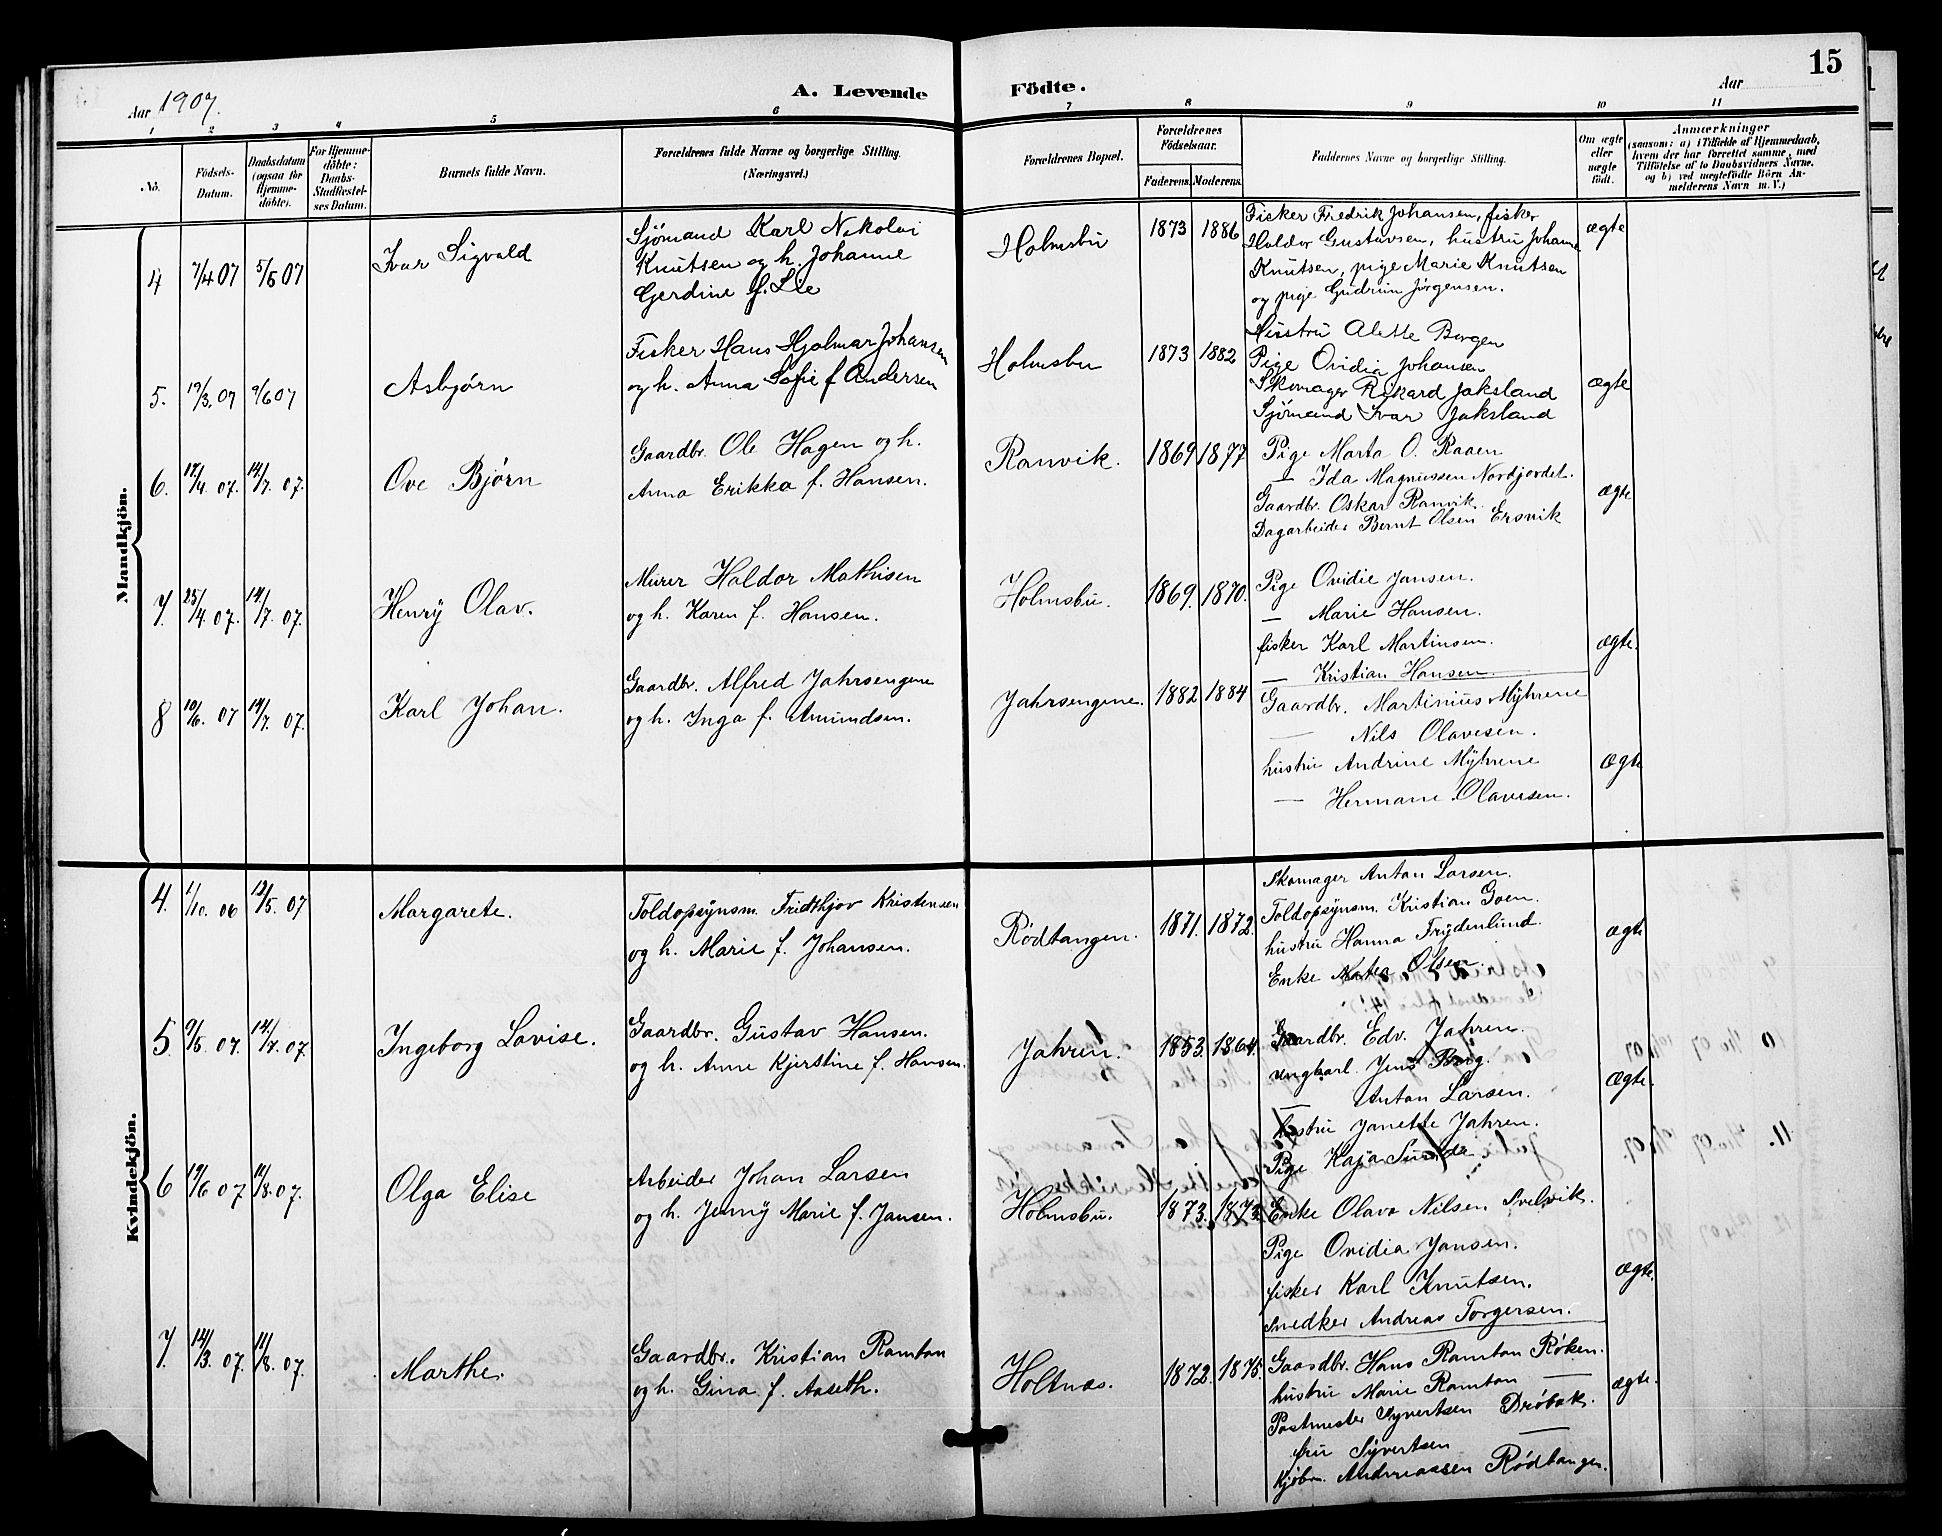 15
Aar 1907.
A. Levende Födte.
Aar
1 2 3 4 5 6 7 8 9 10 11
No.
Födsels-Datum.
Daabsdatum (ogsaa for Hjemme-döbte).
For Hjemme-döbte: Daabs-Stadfæstel-ses Datum.
Barnets fulde Navn.
Forældrenes fulde Navne og borgerlige Stilling. (Næringsvei.)
Forældrenes Bopæl.
Forældrenes Födselsaar.
Faderens. Moderens.
Faddernes Navne og borgerlige Stilling.
Om ægte eller uægte födt.
Anmærkninger
(saasom: a) i Tilfælde af Hjemmedaab, hvem der har forrettet samme, med Tilföielse af to Daabsvidners Navne, og b) ved uægtefödte Börn An-melderens Navn m. V.)
Mandkjön.
4 7/4 07 5/5 07 Ivar Sigvald
Sjömand Karl Nikolai
Knutsen og h. Johanne
Gerdine f. Lie
Holmsbu 1873 1886
Fisker Fredrik Johansen, fisker
Haldor Gustavsen, hustru Johanne
Knutsen, pige Marie Knutsen
og pige Gudrun Jörgensen.
ægte
5. 19/3.07 9/6 07 Asbjørn
Fisker Hans Hjalmar Johansen
og h. Anna Sofie f. Andersen
Holmsbu 1873 1882
Hustru Alette Borgen
Pige Ovidia Johansen
Skomager Rikard Jaksland
Sjömand Ivar Jaksland
ægte
6. 17/4 07. 14/7. 07. Ove Bjørn
Gaardbr. Ole Hagen og h.
Anna Erikka f. Hansen.
Ranvik. 1869 1877
Pige Marta O. Raaen
— Ida Magnussen Nordjordet.
Gaardbr. Oskar Ranvik
Dagarbeider Bernt Olsen Ersvik
ægte
7. 25/4 07. 14/7. 07. Henry Olav.
Murer Haldor Mathisen
og h. Karen f. Hansen.
Holmsbu. 1869. 1870.
Pige Ovidie Jansen.
— Marie Hansen.
fisker Karl Martinsen.
— Kristian Hansen.
ægte.
8 10/6. 07 14/7. 07. Karl Johan.
Gaardbr. Alfred Jahrsengene
og h. Inga f. Amundsen.
Jahrsengene. 1882 1884
Gaardbr. Martinius Myhrene
— Nils Olavesen.
hustru Andrine Myhrene
— Hermane Olavesen.
ægte
Kvindekjön.
4. 1/10. 06 12/5. 07 Margarete.
Toldopsynsm. Fridthjov Kristensen
og h. Marie f. Johansen.
Rödtangen. 1871. 1872.
Skomager Anton Larsen.
Toldopsynsm. Kristian Goen.
hustru Hanna Frydenlund.
Enke Olsen.
ægte
5. 9/5. 07. 14/7. 07. Ingeborg Lovise.
Gaardbr. Gustav Hansen.
og h. Anne Kjerstine f. Hansen.
Jahren. 1853. 1864.
Gaardbr. Edv. Jahren.
ungkarl. Jens Borg.
— Anton Larsen.
hustru Janette Jahren.
Pige Kaja
ægte.
6 19/6 07 11/8. 07. Olga Elise
Arbeider Johan Larsen
og h. Jenny Marie f. Jansen.
Holmsbu. 1873. 1873.
Enke Olava Nilsen Svelvik.
Pige Ovidia Jansen.
fisker Karl Knutsen.
Snedker Andreas Torgersen.
ægte.
7. 14/3. 07. 11/8. 07. Marthe.
Gaardbr. Kristian Ramton
og h. Gina f. Aaseth.
Holtnæs. 1872. 1875.
Gaardbr. Hans Ramton Røken.
hustru Marie Ramton —
Postmester Syvertsen Drøbak.
fru Syvertsen —
Kjöbm. Andreassen Rödtangen.
ægte.